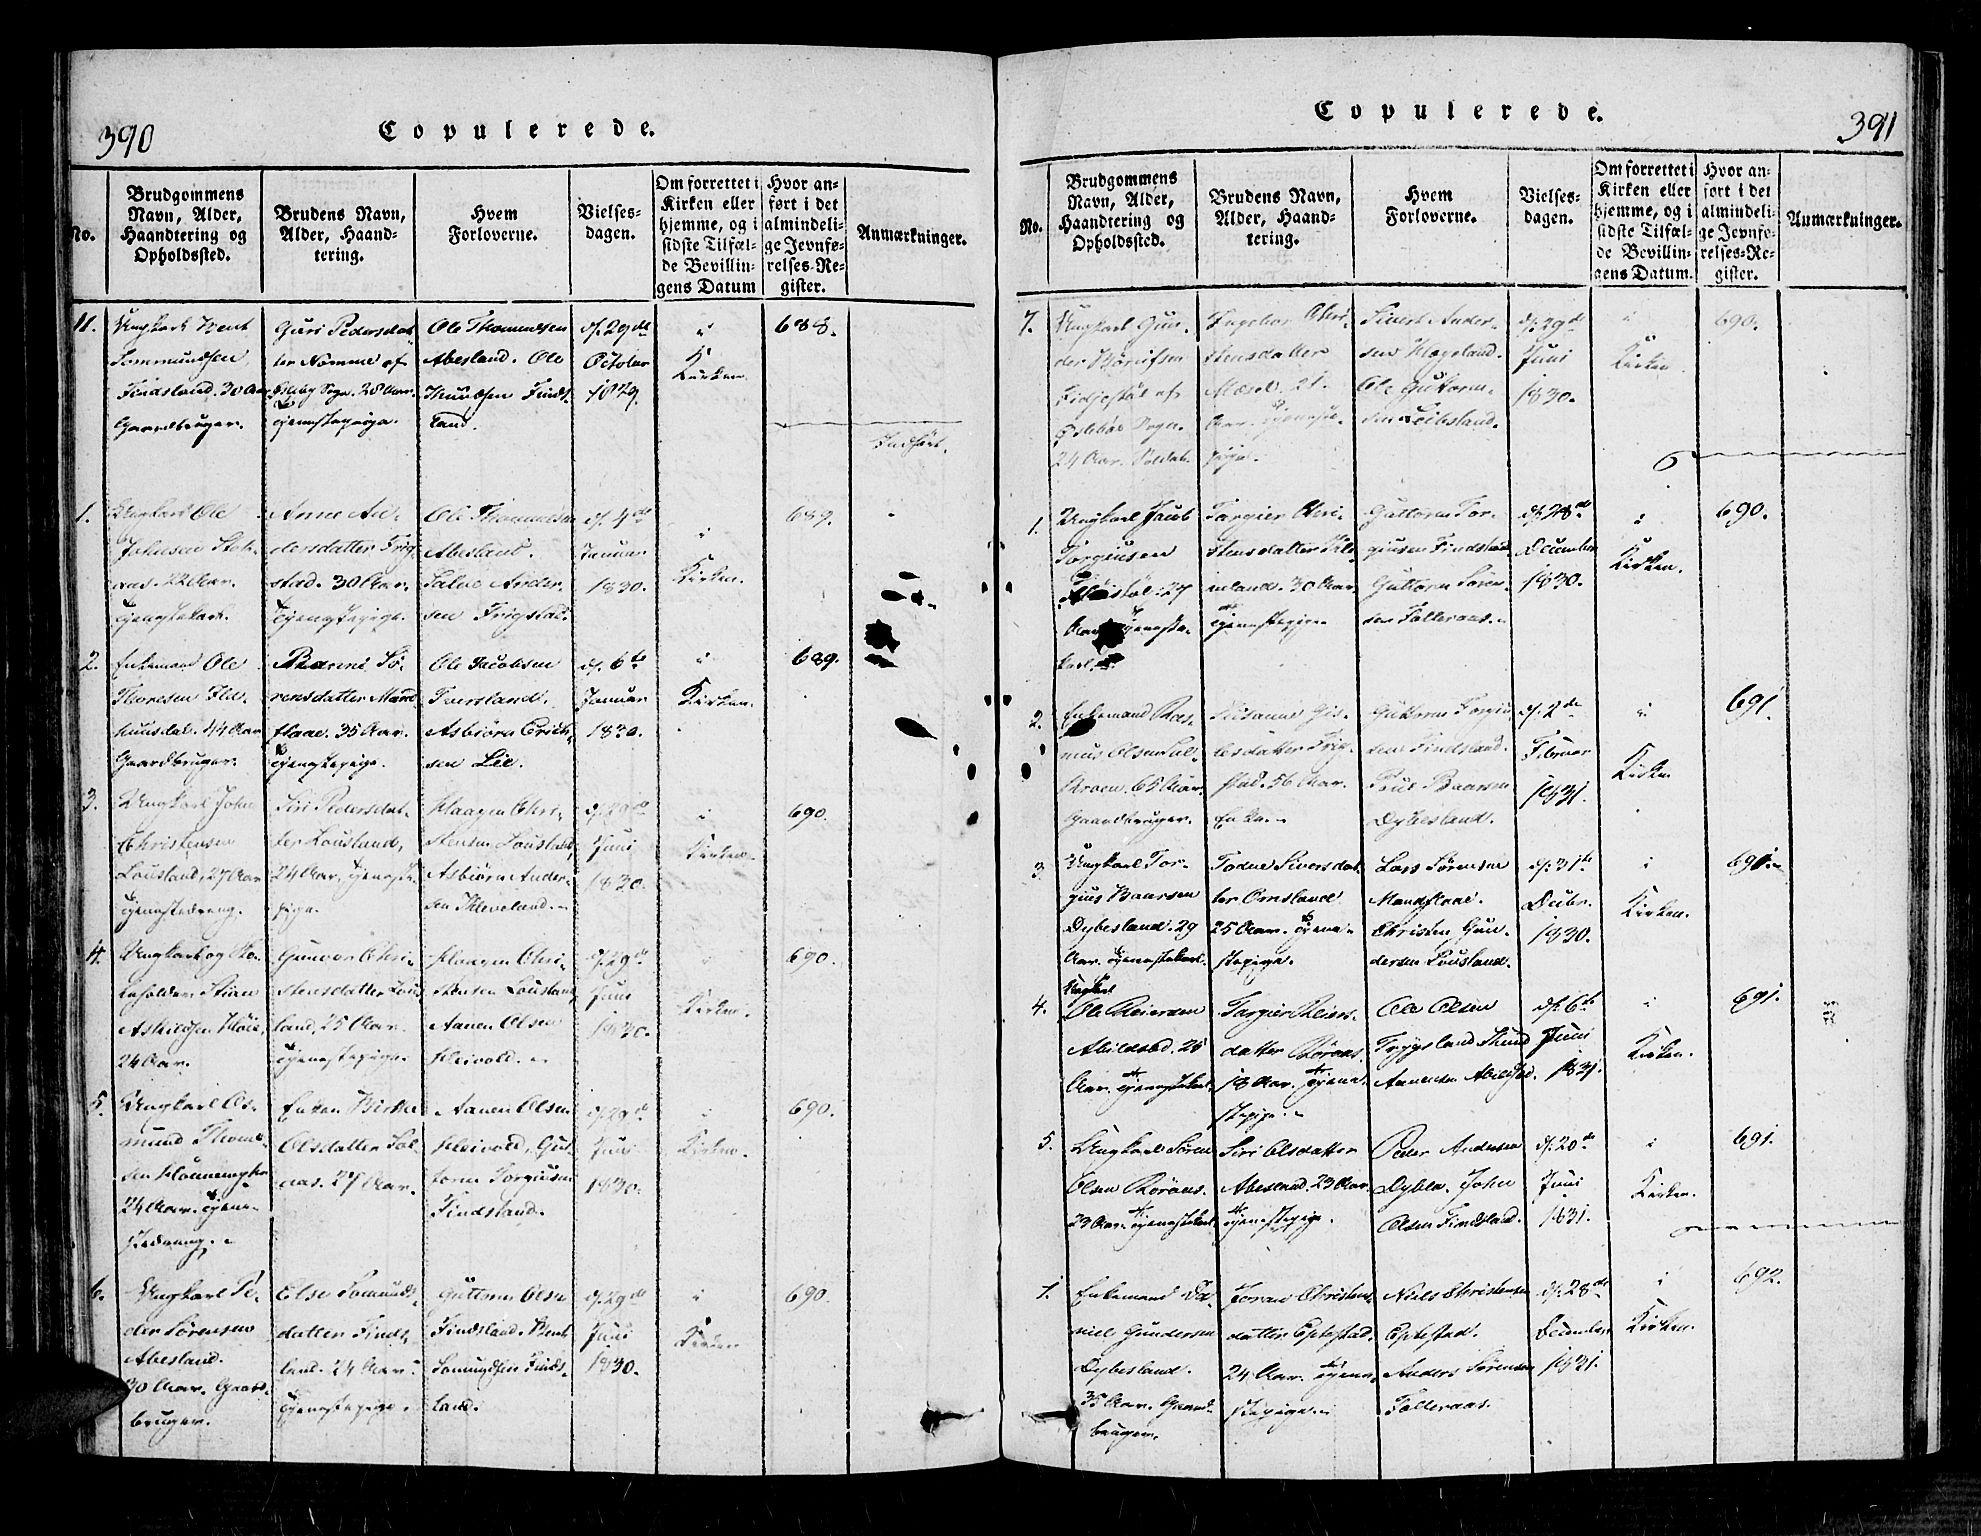 390
Copulerede.
No.
Brudgommens Navn, Alder, Haandtering og Opholdssted.
Brudens Navn, Alder, Haandtering.
Hvem Forloverne.
Vielsesdagen.
Om forrettet i Kirken eller hjemme, og i sidste Tilfælde Bevillingens Datum
Hvor anført i det almindelige Jevnførelses-Register.
Anmærkninger.
11.
Ungkarl Bent
Sommundsen
Findsland. 30 Aar
Gaardbruger.
Guri Pedersdat-
ter Nomme af
Sogn. 28 Aar.
Tjenestepige.
Ole Thommesen
Abesland. Ole
Knudsen Finds-
land.
d. 29de
October
1829.
i
Kirken.
688.
Indført.
1.
Ungkarl Ole
Johnsen
22 Aar.
Tjenestekarl.
Anne An-
dersdatter Trig-
stad. 30 Aar.
Tjenestepige.
Ole Thommesen
Abesland.
Salve Ander-
sen Trigstad.
d. 4de
Januar
1830.
i
Kirken.
689.
2.
Enkemand Ole
Thoresen
44 Aar
Gaardbruger.
Sö-
rensdatter Mand-
flaae. 35 Aar.
Tjenestepige.
Ole Jacobsen
Tversland.
Asbiörn Erich-
sen Lie.
d. 6te
Januar
1830.
i
Kirken.
689.
3.
Ungkarl John
Christensen
Lousland, 27 Aar
Tjenestedreng.
Siri Pedersdat-
ter Lousland,
24 Aar, Tjeneste-
pige.
Haagen Chri-
stensen Lousland,
Asbiörn Ander-
sen Kleveland.
d. 29de
Juni
1830.
i
Kirken.
690.
4.
Ungkarl og
Stian
Askildsen
24 Aar.
Gunvor Chri-
stensdatter Lous-
land, 25 Aar.
Tjenestepige.
Haagen Chri-
stensen Lousland,
Aanen Olsen
Heivold.
d. 29de
Juni
1830.
i
Kirken.
690.
5.
Ungkarl Os-
mund Thom-
sen
24 Aar. Tjene-
stedreng.
Enken Birthe
Olsdatter
27 Aar.
Aanen Olsen
Heivold, Gut-
torm Torgiusen
Findsland.
d. 29de
Juni
1830.
i
Kirken.
690.
6.
Ungkarl Pe-
der Sörensen
Abesland.
30 Aar. Gaard-
bruger.
Else Somunds-
datter Finds-
land. 24 Aar.
Tjenestepige.
Guttorm Olsen
Findsland. Bent
Somundsen Finds-
land.
d. 29de
Juni
1830.
i
Kirken
690
Copulerede.
391
No.
Brudgommens Navn, Alder, Haandtering og Opholdssted.
Brudens Navn, Alder, Haandtering.
Hvem Forloverne.
Vielsesdagen.
Om forrettet i Kirken eller hjemme, og i sidste Tilfælde Bevillingens Datum.
Hvor anført i det almindelige Jevnførelses-Register.
Anmærkninger.
7.
Ungkarl Gun-
der
Fidjestöl af
Sogn.
24 Aar. Soldat.
Ingebor Chri-
stensdatter
Mæsel. 21.
Aar. Tjeneste-
pige.
Sivert Ander-
sen Hægeland.
Ole Guttorm-
sen Leibsland.
d. 29de
Juni
1830.
i
Kirken
690.
1.
Ungkarl Jacob
Torgiusen
27
Aar. Tjeneste-
karl.
Targier Chri-
stensdatter
30 Aar
Tjenestepige
Guttorm Tor-
giusen Findsland
Guttorm Sören-
sen Tolleraas.
d. 28de
December
1830.
i
Kirken.
690.
2.
Enkemand Ras-
mus Olsen
65 Aar.
Gaardbruger.
Susanne Gis-
lesdatter Trig-
stad. 56 Aar.
Enke.
Guttorm Torgiu-
sen Findsland.
Poul Baarsen
Dybesland.
d. 2de
Februar
1831.
i
Kirken
691.
3.
Ungkarl Tor-
gius Baarsen
Dybesland. 29
Aar. Tjenestekarl.
Todne Siversdat-
ter Omsland
25 Aar. Tjene-
stepige.
Lars Sörensen
Mandflaae.
Christen Gun-
dersen Lousland.
d. 31te
Decbr.
1830.
i
Kirken.
690.
4.
Ungkarl
Ole Reiersen
Abildsød. 25
Aar. Tjenestekarl.
Targier Reiers-
datter Röraas.
18 Aar. Tjene-
stepige.
Ole Olsen
Trygsland Knud
Aanensen Abildsød.
d. 6te
Juni
1831.
i
Kirken.
691.
5.
Ungkarl Sören
Olsen Röraas.
23 Aar. Tjenestekarl
Siri Olsdatter
Abesland. 23 Aar.
Tjenestepige.
Peder Andersen
Dyblen. John
Olsen Findsland.
d. 20de
Juni
1831.
i
Kirken.
691.
1.
Enkemand Da-
niel Gundersen
Dybesland.
35 Aar. Gaard-
bruger.
Joran Christens-
datter Eptestad.
24 Aar. Tjene-
stepige.
Niels Christensen
Eptestad.
Anders Sörensen
Tolleraas.
d. 28de
December
1831.
i
Kirken.
692.